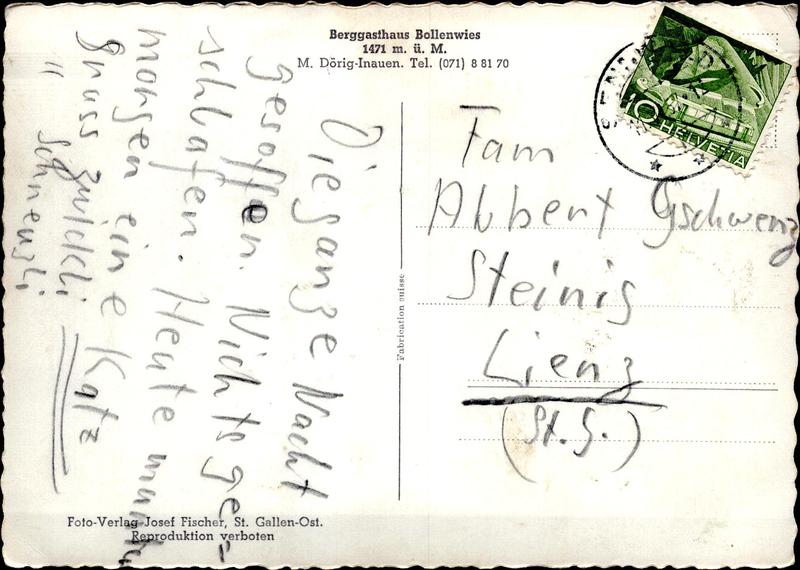 Berggasthaus Bollenwies
1471 m. ü. M.
M. Dörig-Inauen. Tel. (071) 8 81 70
10 HELVETIA
Fam
Albert Gschwenz
Steinig
Lienz
(St. G.)
Fabrication suisse
Die ganze Nacht
gesoffen. Nichts ge-
schlafen. Heute
morgen eine Katz
Gruss Zwickli
" Schneuzli
Foto-Verlag Josef Fischer, St. Gallen-Ost.
Reproduktion verboten